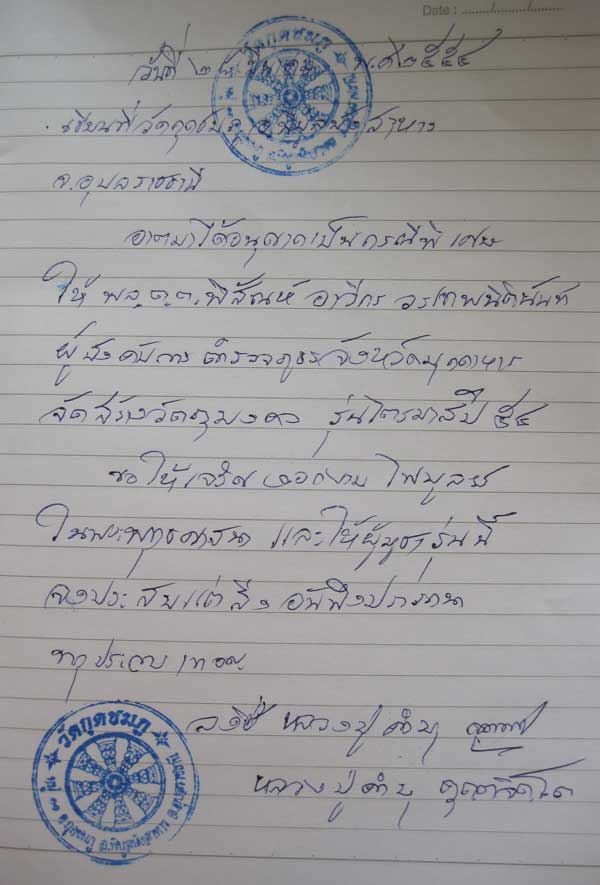 Date : ......../............/............
วันที่ ๒๘ มีนาคม พ.ศ ๒๕๕๔
เขียนที่วัดกุดชมภู อ.พิบูลมังสาหาร
จ.อุบลราชธานี
อาตมาได้อนุญาตเป็นกรณีพิเศษ
ให้ พล.ต.ต.พิสัณห์ อาวีกร วรเทพนิตินันท์
ผู้บังคับการ ตำรวจภูธรจังหวัดมุกดาหาร
จัดสร้างวัตถุมงคล รุ่นไตรมาสปี ๕๔
ขอให้เจริญ งอกงาม ไพบูลย์
ในพระพุทธศาสนา และให้ผู้บูชารุ่นนี้
จงประสบแต่สิ่ง อันพึงปรารถนา
ทุกประการ เทอญ
ลงชื่อ หลวงปู่คำบุ
หลวงปู่คำบุ คุตฺตจิตฺโต
วัดกุดชมภู